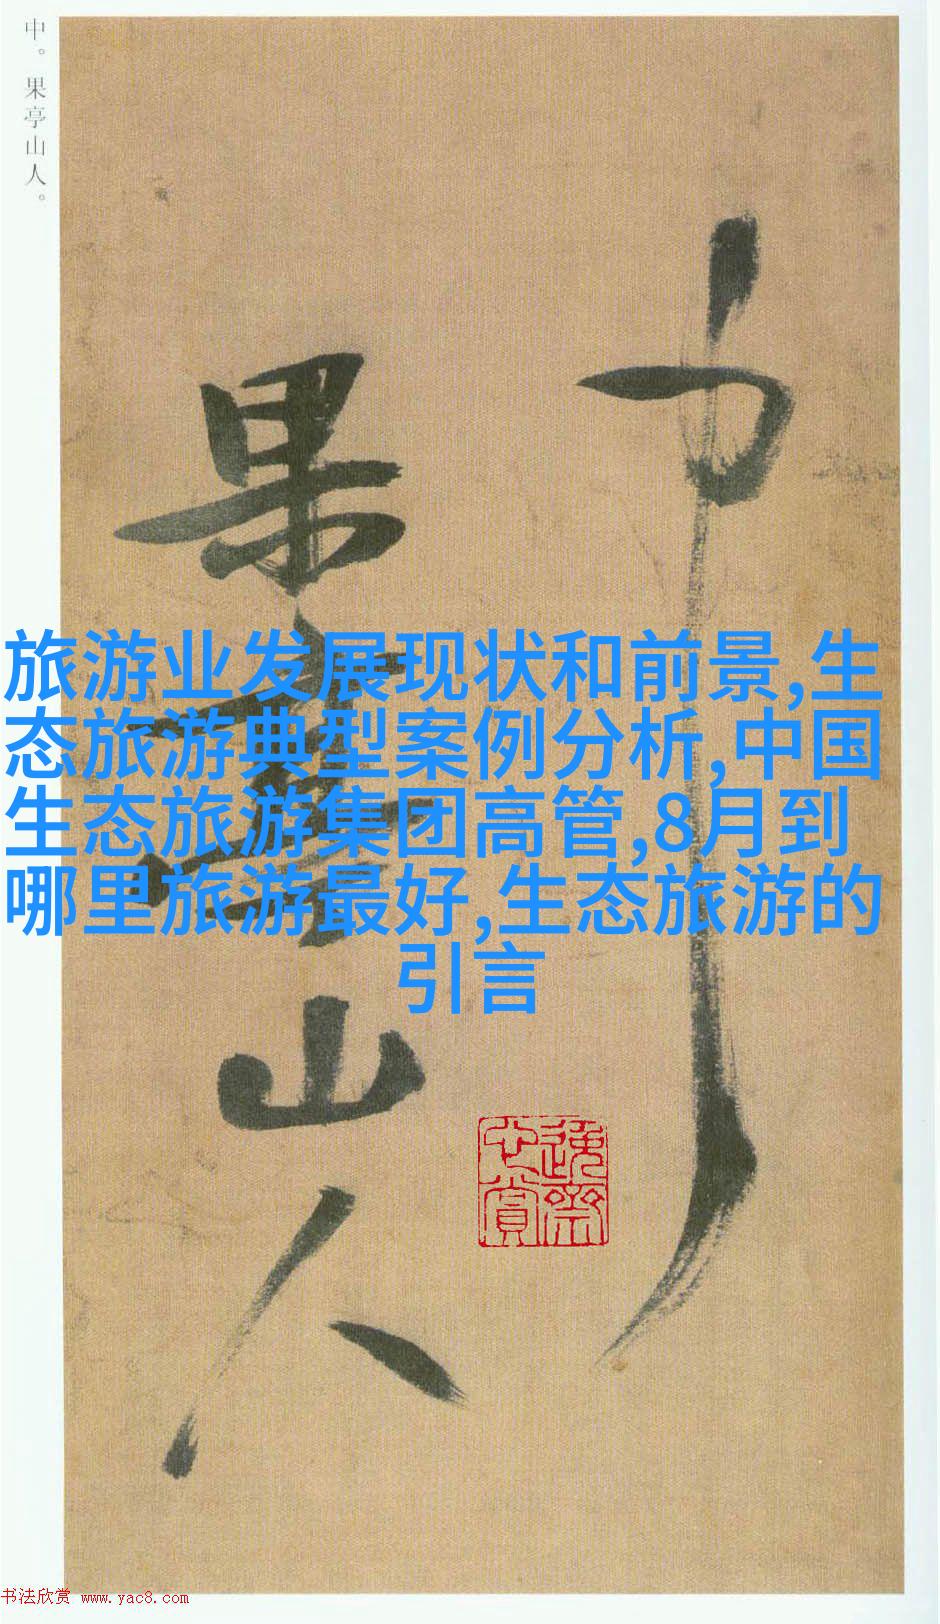 中。果亭山人。
中
果亭山人
旅游业发展现状和前景,生
态旅游典型案例分析,中国
生态旅游集团高管,8月到
哪里旅游最好,生态旅游的
引言
逸齋
心賞
书法欣赏 www.yac8.com